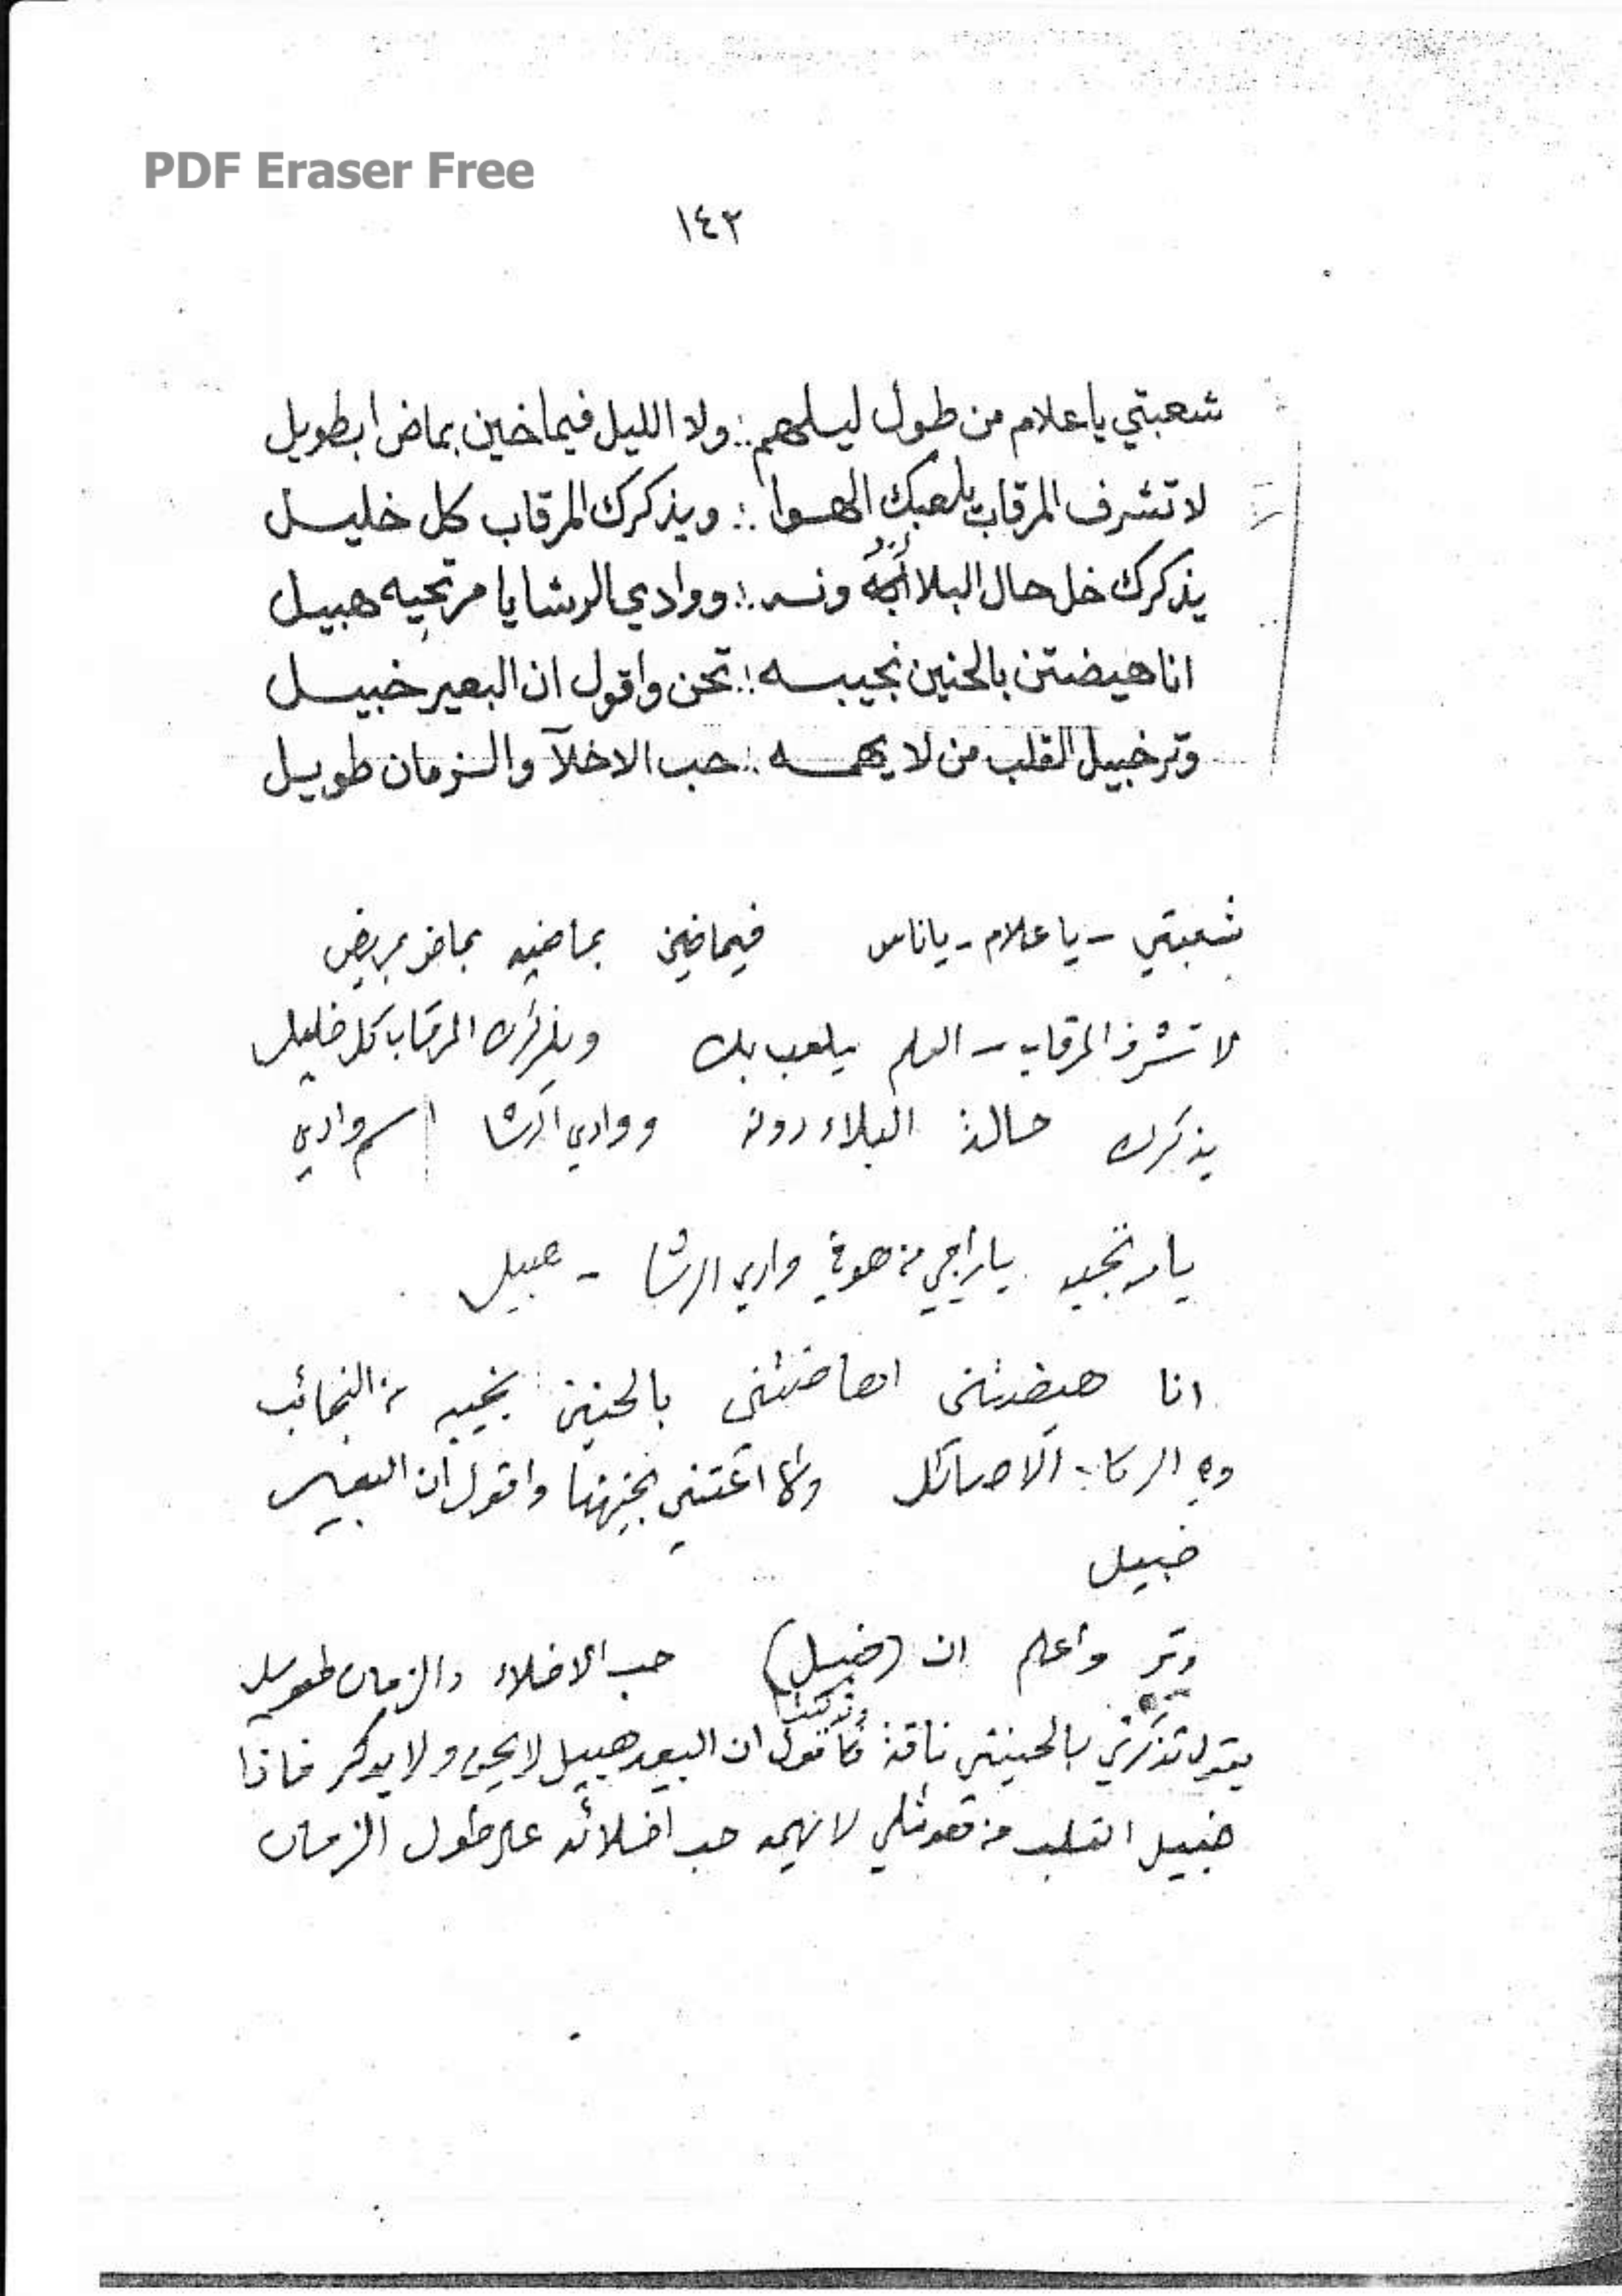 PDF Eraser Free
١٤٢
شعبتي ياعلام من طول ليلهم :. ولا الليل فيما خين بماض ابطويل
لا تشرف المرقاب يلعبك الهوا :. ويذكرك المرقاب كل خليل
يذكرك خل حال البلا ونه :. ووادي الرشا يا مرتجيه هبيل
انا هيضتن بالحنين نجيبه :. تحن واقول ان البعير خبيل
وتر خبيل القلب من لا يهمه :. حب الاخلآ والزمان طويل
شعبتي - يا علام - ياناس فيما خين بماضيه بماض
لا تشرف المرقاب - العلم يلعب بك ويذكرك المرقاب كل خليل
يذكرك حالة البلاء دونه ووادي الرشا اسم وادي
يا مرتجيه يا راجي من هو في وادي الرشا - هبيل
انا هيضتني بالحنين نجيبه من النجائب
وهي الركاب الاصائل واقول ان البعير
خبيل
وتر واعلم ان (خبيل) حب الاخلاء والزمان طويل
يقول تذكرني بالحنين ناقة فأقول ان البعير هبيل لا يحن ولا يذكر فاذا
خبيل القلب من هو مثلي لا يهمه حب اخلائه على طول الزمان